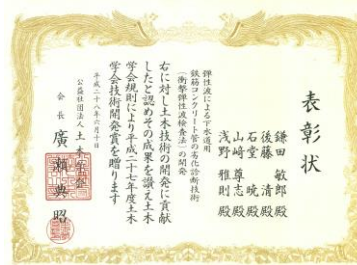 表彰状
鎌田 敏郎 殿
後藤 清 殿
石堂 暁 殿
山﨑 尊志 殿
浅野 雅則 殿
弾性波による下水道用
鉄筋コンクリート管の劣化診断技術
(衝撃弾性波検査法)の開発
右に対し土木技術の開発に貢献
したと認めその成果を讃え土木
学会規則により平成二十七年度土木
学会技術開発賞を贈ります
平成二十八年六月十日
公益社団法人 土木学会
会長 廣瀬 典昭